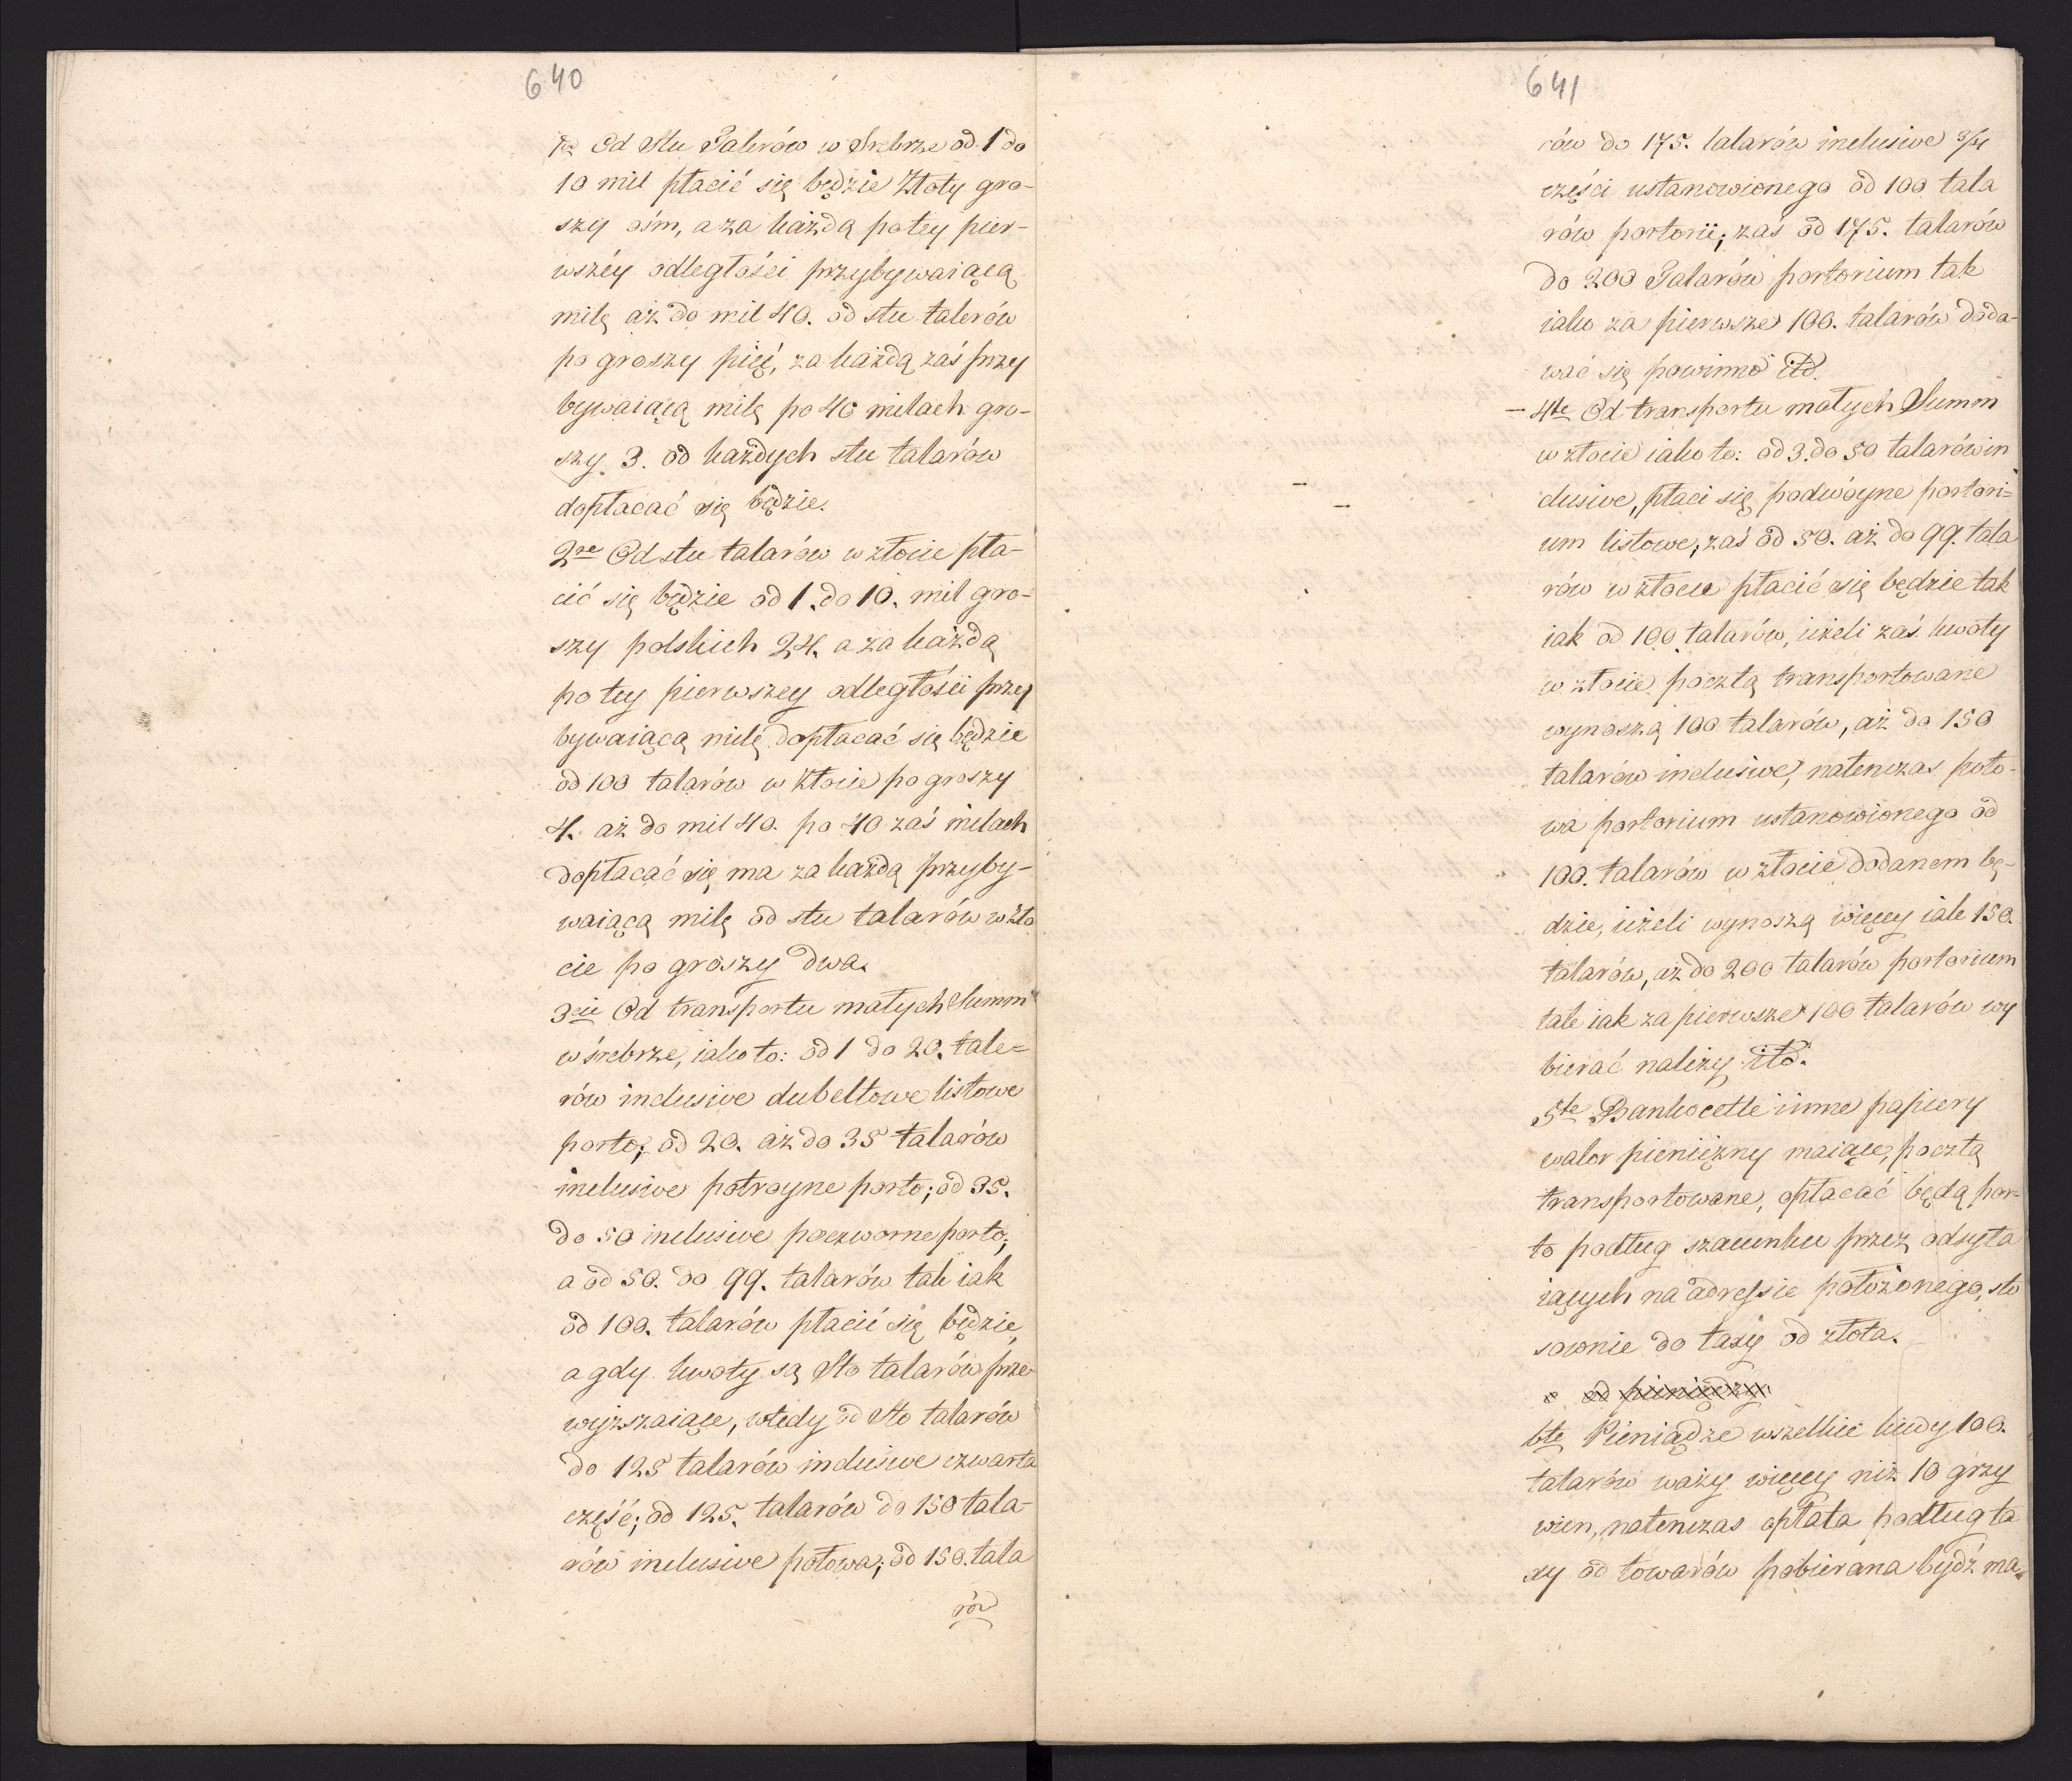 640
1o Od Stu Talerów w Srebrze od 1 do
10 mil płacić się będzie Złoty gro-
szy ośm, a za każdą po tey pier-
wszéy odległości przybywaiącą
milę aż do mil 40. od stu talerów
po groszy pięć, za każdą zaś przy
bywaiącą milę po 40 milach gro-
szy 3. od każdych stu talarów
dopłacać się będzie.
2re Od stu talarów w złocie pła-
cić się będzie od 1. do 10. mil gro-
szy polskich 24. a za każdą
po tey pierwszey odległości przy
bywaiącą milę dopłacać się będzie
od 100 talarów w złocie po groszy
4. aż do mil 40. po 40 zaś milach
dopłacać się ma za każdą przyby-
waiącą milę od stu talarów w zło
cie po groszy dwa.
3cie Od transportu małych Summ
w śrebrze, iako to: od 1 do 20. tale=
rów inclusive dubeltowe listowe
porto; od 20. aż do 35 talarów
inclusive potroyne porto; od 35.
do 50 inclusive poczworne porto;
a od 50. do 99. talarów tak iak
od 100. talarów płacić się będzie,
a gdy kwoty są Sto talarów prze
wyższaiące, wtedy od Sto talarów
do 125 talarów inclusive czwarta
część; od 125. talarów do 150 tala-
rów inclusive połowa; od 150. tala
rów
641
rów do 175. talarów inclusive 3/4
części ustanowionego od 100 tala
rów portorii; zaś od 175. talarów
do 200 Talarów portorium tak
iako za pierwsze 100. talarów doda-
wać się powinno itd.
– 4te Od transportu małych Summ
w złocie iako to: od 3. do 50 talarów in
clusive, płaci się podwóyne portori=
um listowe, zaś od 50. aż do 99. tala
rów w złocie płacić się będzie tak
iak od 100 talarów, ieżeli zaś kwoty
w złocie pocztą transportowane
wynoszą 100 talarów, aż do 150
talarów inclusive, natenczas poło-
wa portorium ustanowionego od
100. talarów w złocie dodanem bę-
dzie, ieżeli wynoszą więcey iak 150.
talarów, aż do 200 talarów portorium
tak iak za pierwsze 100 talarów wy
bierać należy itd.
5te Bankocetle inne papiery
walor pieniężny maiące, pocztą
transportowane, opłacać będą por-
to podług szacunku przez odsyła
iących na adressie położonego, sto
sownie do taxy od złota.
od pieniędzy
6te Pieniądze wszelkie kiedy 100.
talarów waży więcey niż 10 grzy
wien, natenczas opłata podług ta
xy od towarów pobierana bydź ma.